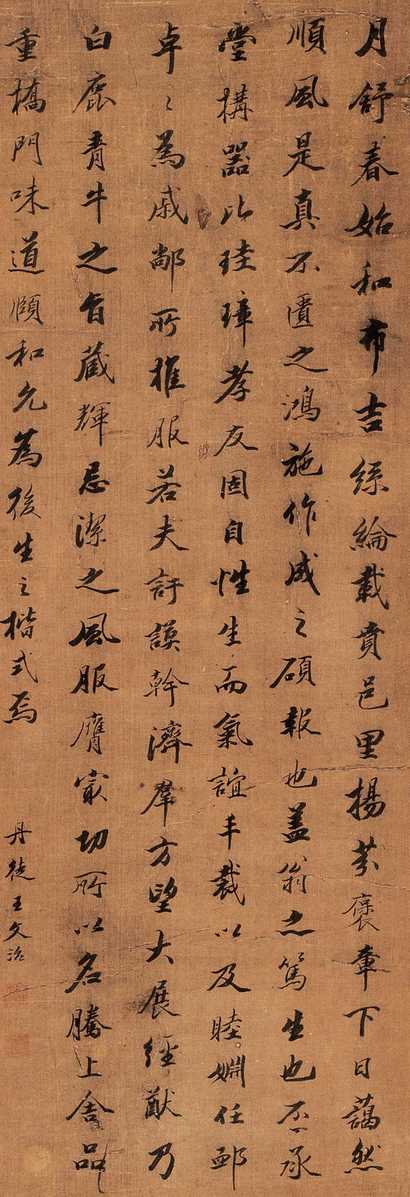 月舒春始和布吉絲綸載賁邑里揚芬褒章下日藹然
順風是真不匱之鴻施作成之碩報也蓋翁之篤生也丕承
堂構器比珪璋孝友固自性生而氣誼丰裁以及睦婣任卹
卓〻為戚鄰所推服若夫訏謨幹濟羣方望大展經猷乃
白鹿青牛之旨藏輝忌潔之風服膺最切所以名騰上舍品
重橋門味道頤和允為後生之楷式焉
丹徒王文治